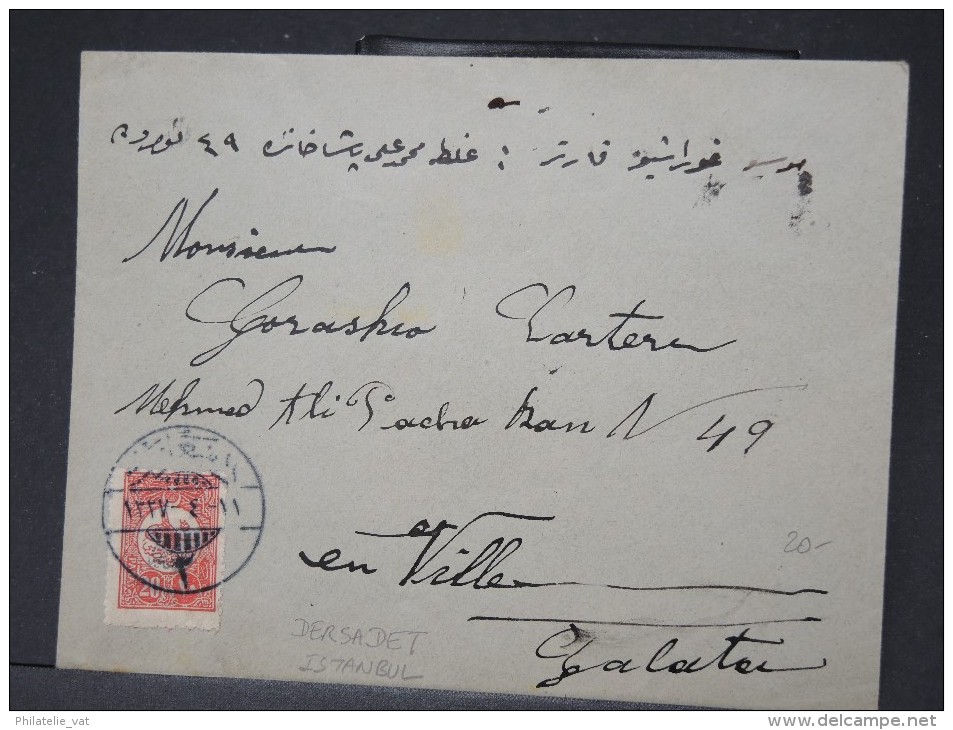 موسيو غوراشيو قارتر : غلطه محمد علی پاشا خاننده ٤٩ نومروده
Monsieur
Gorashio Carterer
Mehmed Ali Pacha Han N 49
en Ville
Galata
20-
DERSADET
ISTANBUL
١٣٢٧-٤-١١
20
Philatelie_vat
http://www.delcampe.net